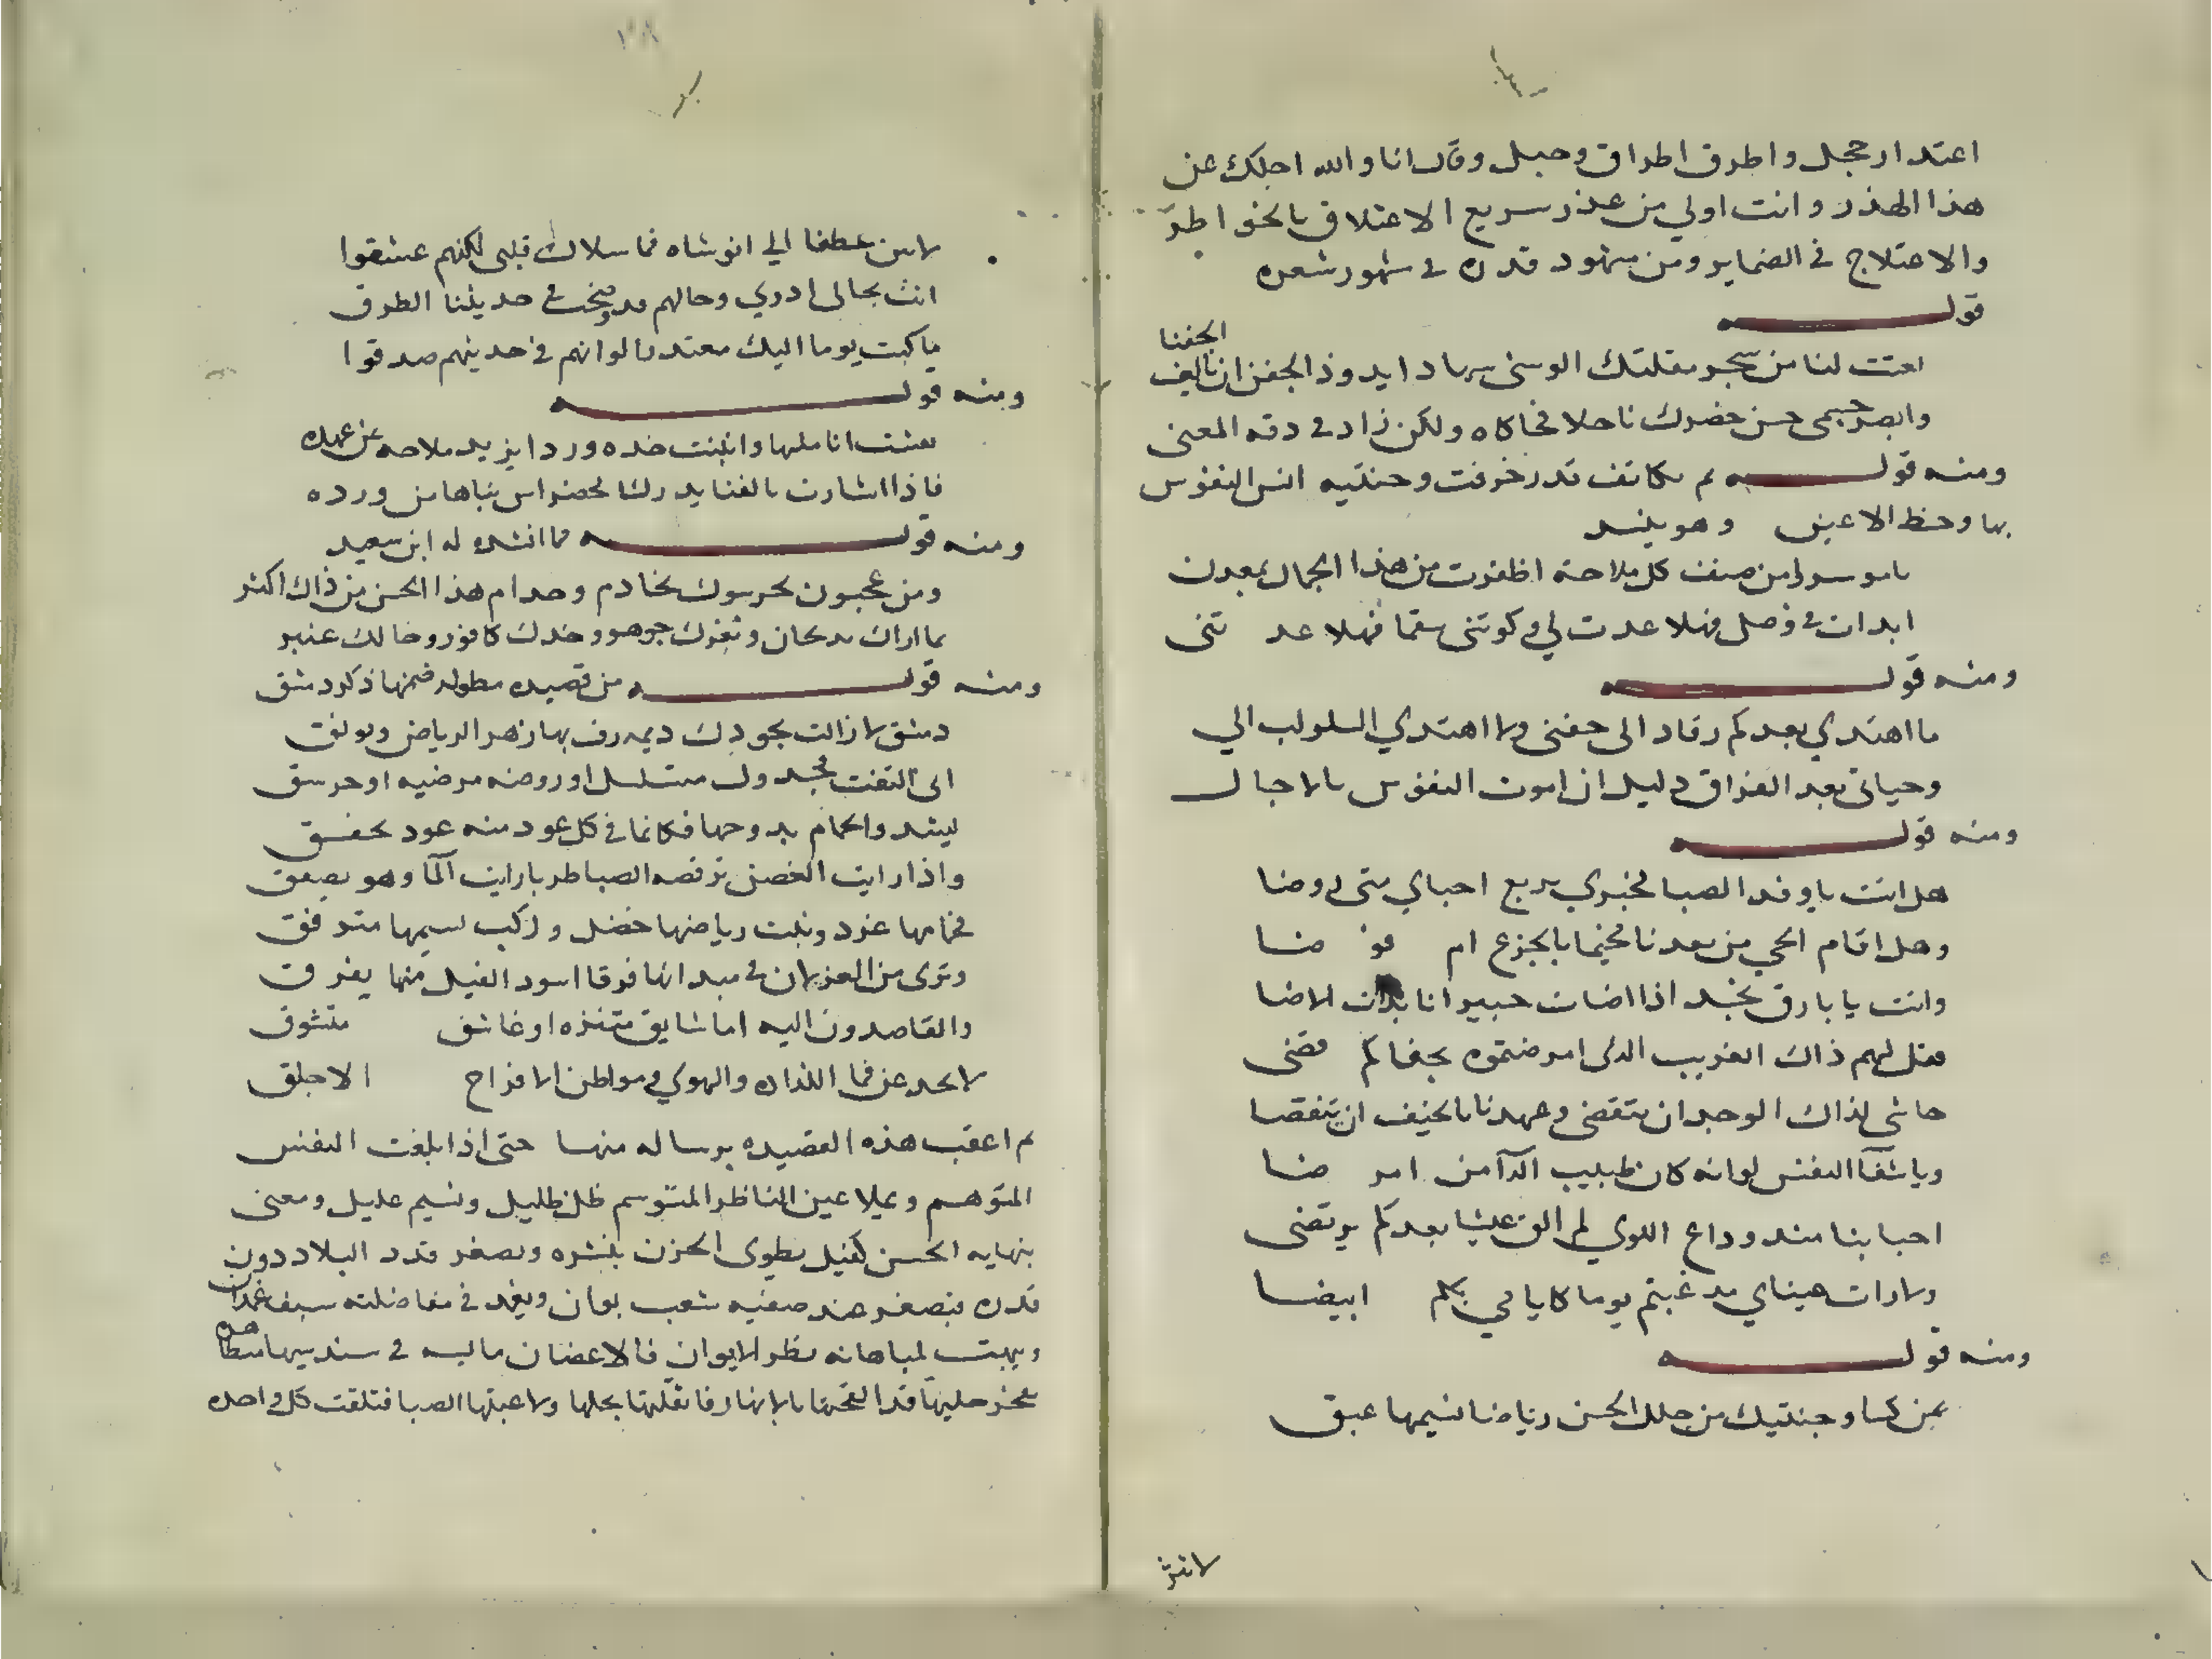 اعتدار حجل واطرق اطراق وجل وقال انا والله اجلك عن
هذا الهذر وانت اولي من عذر سريع الاعتلاق بالخواطر
والاعتلاج في الضماير ومن شهود قدره في شهور شعره
قوله
لنا من سحر مقلتك الوسنى سهادا يذود الجفن ان يالف الجفنا
وابصر جسمى حسن خصرك ناحلا فحاكاه ولكن زاد في دقه المعنى
ومنه قوله تم قد زخرفت وجنتيه انس النفوس
بها وحظ الاعين وهو ينشد
من صنف كل ملاحة اظفرت من هذا الجمال بمعدن
ابدات في وصل فهلا عدت لي وكويتنى سقما فهلا عد تنى
ومنه قوله
ما اهتدي بعدكم رقاد الى جفنى ولا اهتدي السلو لبالي
وحياتى بعد الفراق دليل ان موت النفوس بالاجال
ومنه قوله
هل انت يا وفد الصبا مخبري بربع احبابي متى روضا
وهل اقام الحي من بعدنا مخيما بالجزع ام قو ضا
وانت يا بارق نجد اذا اضات حبيرانا بذات الاضا
فقل لهم ذاك الغريب الذى امرضتموه بجفاكم قضى
حاشى لذاك الوجد ان ينقضى وعهدنا بالخيف ان ينقضا
وياشفا النفس لو انه كان طبيب الدآ من امر ضنا
احبابنا منذ وداع اللوي لم الق عيشا بعدكم يرتضى
ولا رات عيناي مذ غبتم يوما كايامي بكم ابيضا
ومنه قوله
بمن كسا وجنتيك من حلل الحسن رياضا نسيمها عبق
لا تثن
لا تثن عطفا الي الوشاه فما سلاك قلبى لكنهم عشقوا
انت بحالى ادري وحالهم قد وضحت في حديثنا الطرق
ما كنت يوما اليك معتدرا لو انهم في حديثهم صدقوا
ومنه قوله
نقشت اناملها وانبتت خده وردا يزيد ملاحه عن عهده
فاذا اشارت بالغنا يدرك لحضر اس بناها من ورده
ومنه قوله مما انشده له ابن سعيد
ومن عجب ان يحرسوك بخادم وخدام هذا الحسن من ذاك اكثر
ريحان وثغرك جوهر وخدك كافور وخالك عنبر
ومنه قوله من قصيده مطوله فمنها ذكر دمشق
دمشق لا زالت بجودك ديمه رف بها زهر الرياض ويونق
انى التفت فجدول متسلسل او روضه مرضيه او جوسق
ينشد والحمام بدوحها فكانما في كل عود منه عود يخفق
واذا رايت الغصن ترقصه الصبا طربا رايت المآ وهو يصفق
فحمامها غرد ونبت رياضها خضل وركب نسيمها متدفق
وترى من الغزلان في ميدانها فرقا اسود الغيل منها يفرق
والقاصدون اليه اما شايق متنزه او عاشق متشوق
لا تحدعن فما اللذات والهوى ومواطن الافراح الا جلق
ثم اعقب هذه القصيده برساله منها حتى اذا بلغت النفس
المتوهم وعلا عين الناظر المتوسم ظل ظليل ونسيم عليل ومغنى
بنهايه الحسن كفيل يطوى الحزن بنشره ويصغر قدر البلاد دون
قدره فيصغر عند صفتيه شعب بوان ويغمد في مفاضلته سيف غمدان
ويبهت لمباهاته نظر الايوان فالاغصان مايسه في سندسيها
حليها قد القحتها بالانهار فاثقلتها بحملها ولاعبتها الصبا فتلقت كل واحده